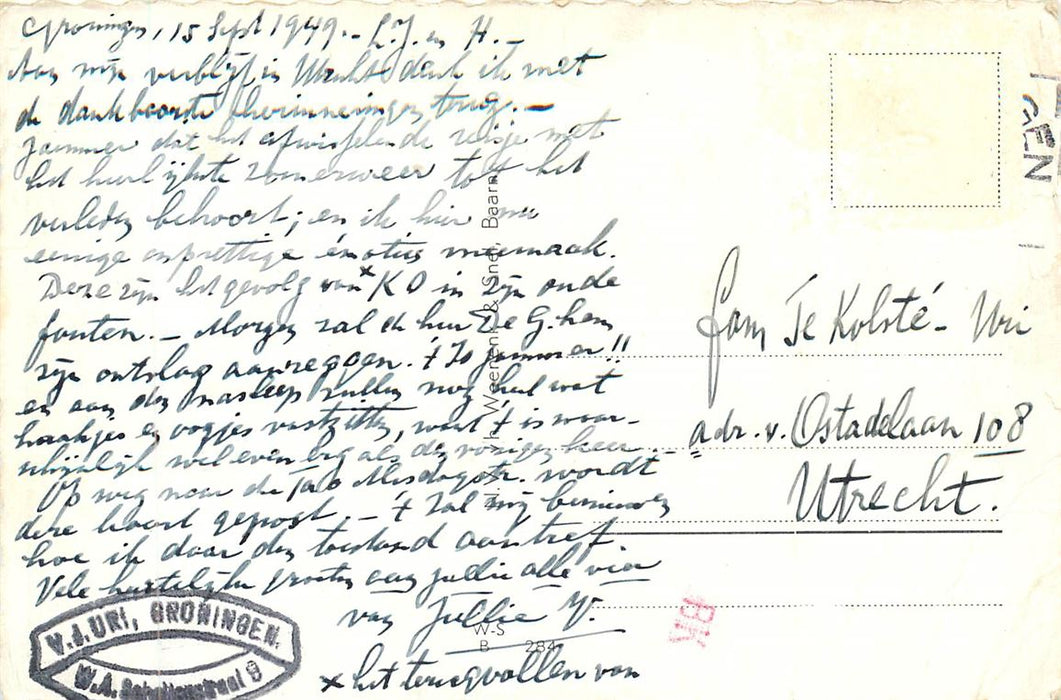 Groningen, 15 Sept 1949.- L.J. en H.-
Aan mijn verblijf in Utrecht denk ik met
de dankbaarste herinneringen terug.-
Jammer dat het afwisselende reisje met
het heerlijkste zomerweer tot het
verleden behoort; en ik hier nu
eenige onprettige émoties meemaak.
Deze zijn het gevolg van x K O in zijn oude
fouten.- Morgen zal de heer De G. hem
zijn ontslag aanzeggen. 't Is jammer!!
en aan den nasleep zullen nog heel wat
haakjes en oogjes vastzitten, want 't is waar-
schijnlijk wel even erg als de vorigen keer.
Op weg naar de Taco Mesdagstr. wordt
deze kaart gepost.- 't Zal mij benieuwen
hoe ik daar den toestand aantref.
Vele hartelijke groeten aan jullie alle vier
van Jullie V.
x het terugvallen van
Fam Te Kolsté- Uri
adr. v. Ostadelaan 108
Utrecht.
V.J. URI, GRONINGEN.
W.A. Scholtenstraat 9
Weenenk & Snel, Baarn
W-S
B 284
GEN